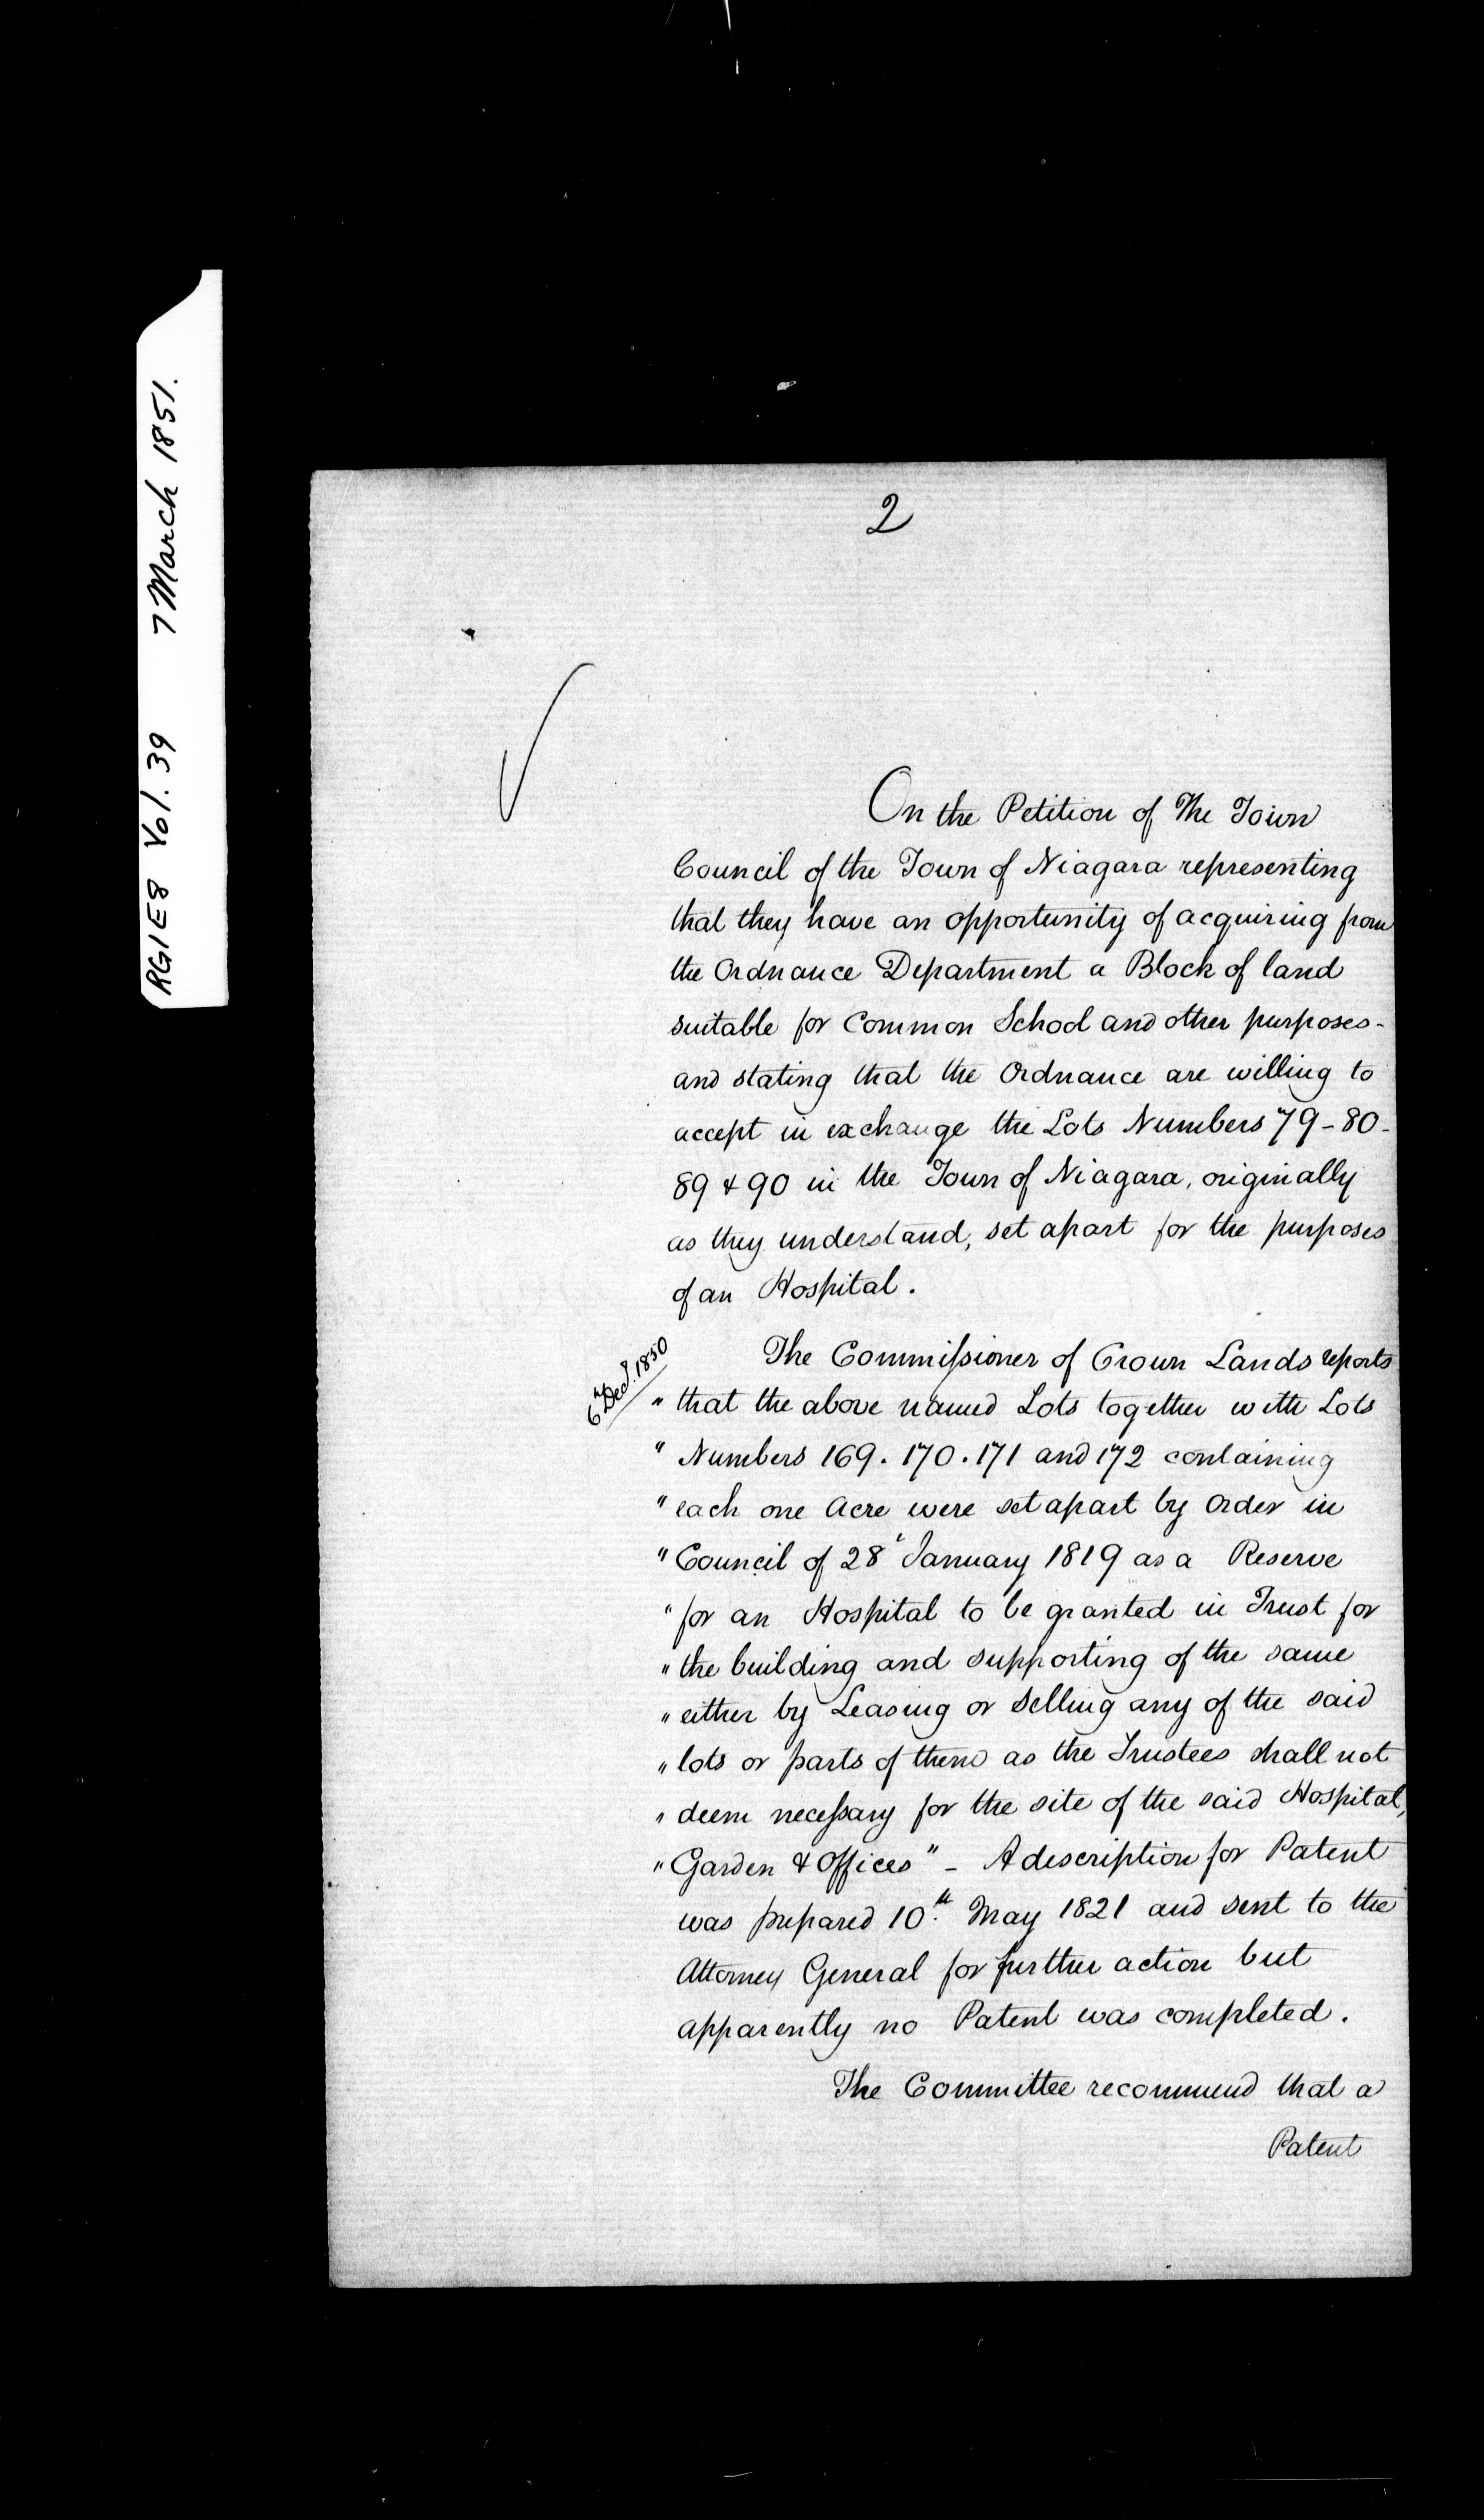 RG1E8 Vol. 39 7 March 1851.
2
On the Petition of The Town
Council of the Town of Niagara representing
that they have an opportunity of acquiring from
the Ordnance Department a Block of land
suitable for Common School and other purposes -
and stating that the Ordnance are willing to
accept in exchange the Lots Numbers 79 - 80 -
89 & 90 in the Town of Niagara, originally
as they understand, set apart for the purposes
of an Hospital.
6th Decr. 1850
The Commissioner of Crown Lands reports
" that the above named Lots together with Lots
" Numbers 169. 170. 171 and 172 containing
" each one Acre were set apart by Order in
" Council of 28t January 1819 as a Reserve
" for an Hospital to be granted in Trust for
" the building and supporting of the same
" either by Leasing or Selling any of the said
" lots or parts of them as the Trustees shall not
" deem necessary for the site of the said Hospital,
" Garden & Offices" - A description for Patent
was prepared 10th. May 1821 and sent to the
Attorney General for further action but
apparently no Patent was completed.
The Committee recommend that a
Patent